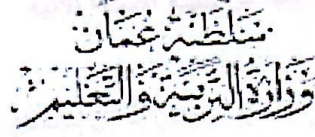 سَلطنَة عُمَان
وَزَارَة التَّربيَة وَالتَّعْليم